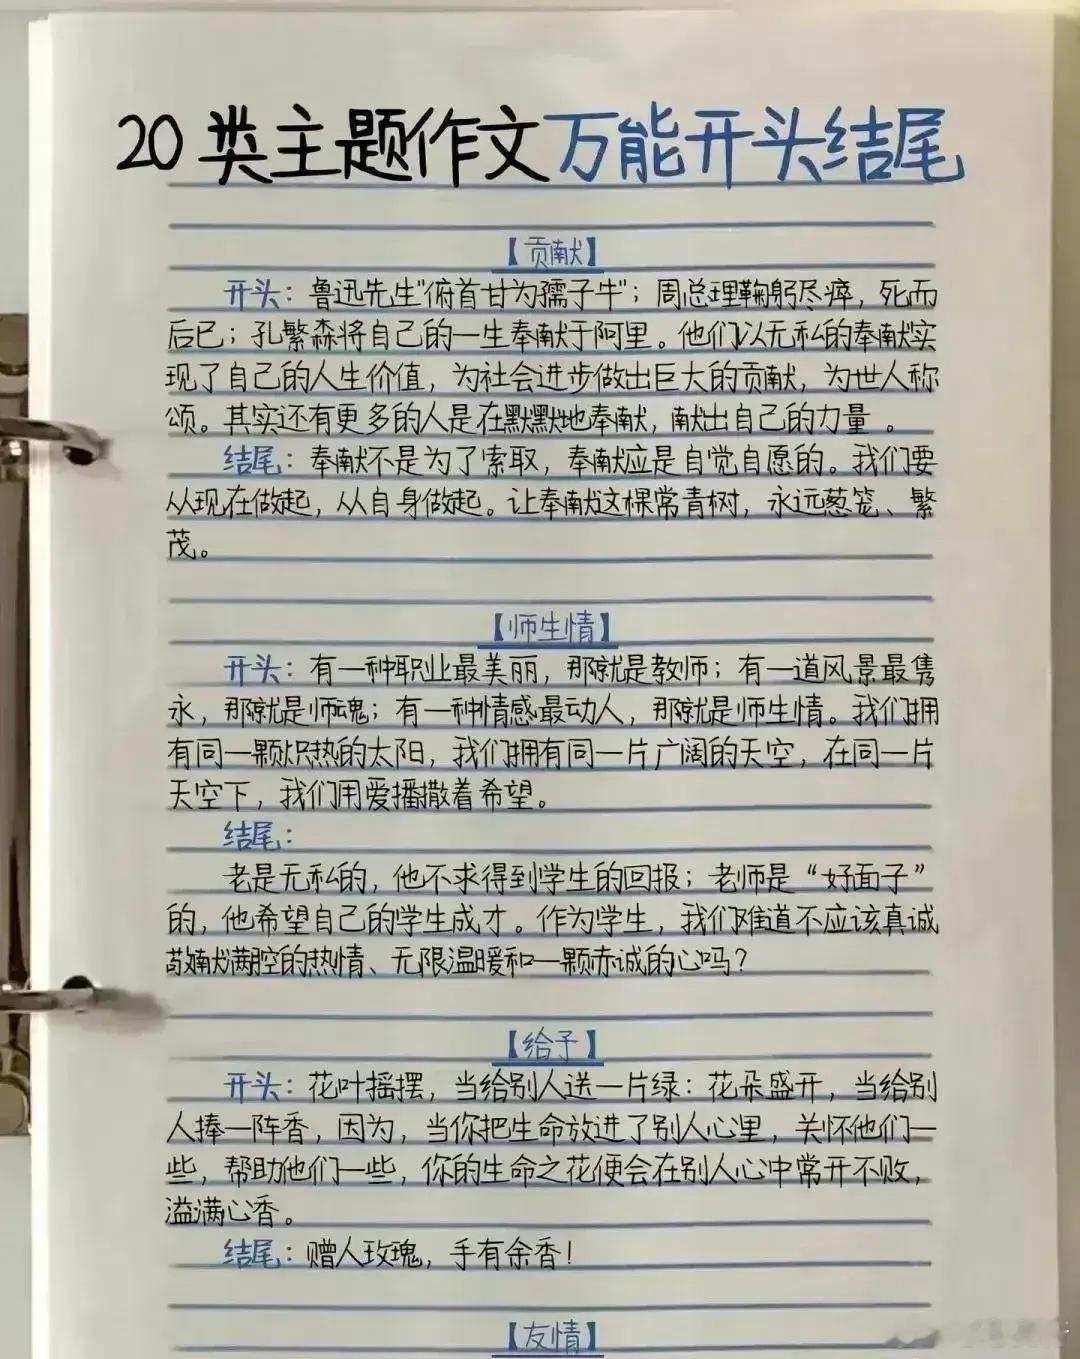 20类主题作文万能开头结尾
【贡献】
开头：鲁迅先生“俯首甘为孺子牛”；周总理鞠躬尽瘁，死而
后已；孔繁森将自己的一生奉献于阿里。他们以无私的奉献实
现了自己的人生价值，为社会进步做出巨大的贡献，为世人称
颂。其实还有更多的人是在默默地奉献，献出自己的力量。
结尾：奉献不是为了索取，奉献应是自觉自愿的。我们要
从现在做起，从自身做起。让奉献这棵常青树，永远葱茏、繁
茂。
【师生情】
开头：有一种职业最美丽，那就是教师；有一道风景最隽
永，那就是师魂；有一种情感最动人，那就是师生情。我们拥
有同一颗炽热的太阳，我们拥有同一片广阔的天空，在同一片
天空下，我们用爱播撒着希望。
结尾：
老是无私的，他不求得到学生的回报；老师是“好面子”
的，他希望自己的学生成才。作为学生，我们难道不应该真诚
敬献满腔的热情、无限温暖和一颗赤诚的心吗？
【给予】
开头：花叶摇摆，当给别人送一片绿：花朵盛开，当给别
人捧一阵香，因为，当你把生命放进了别人心里，关怀他们一
些，帮助他们一些，你的生命之花便会在别人心中常开不败，
溢满心香。
结尾：赠人玫瑰，手有余香！
【友情】